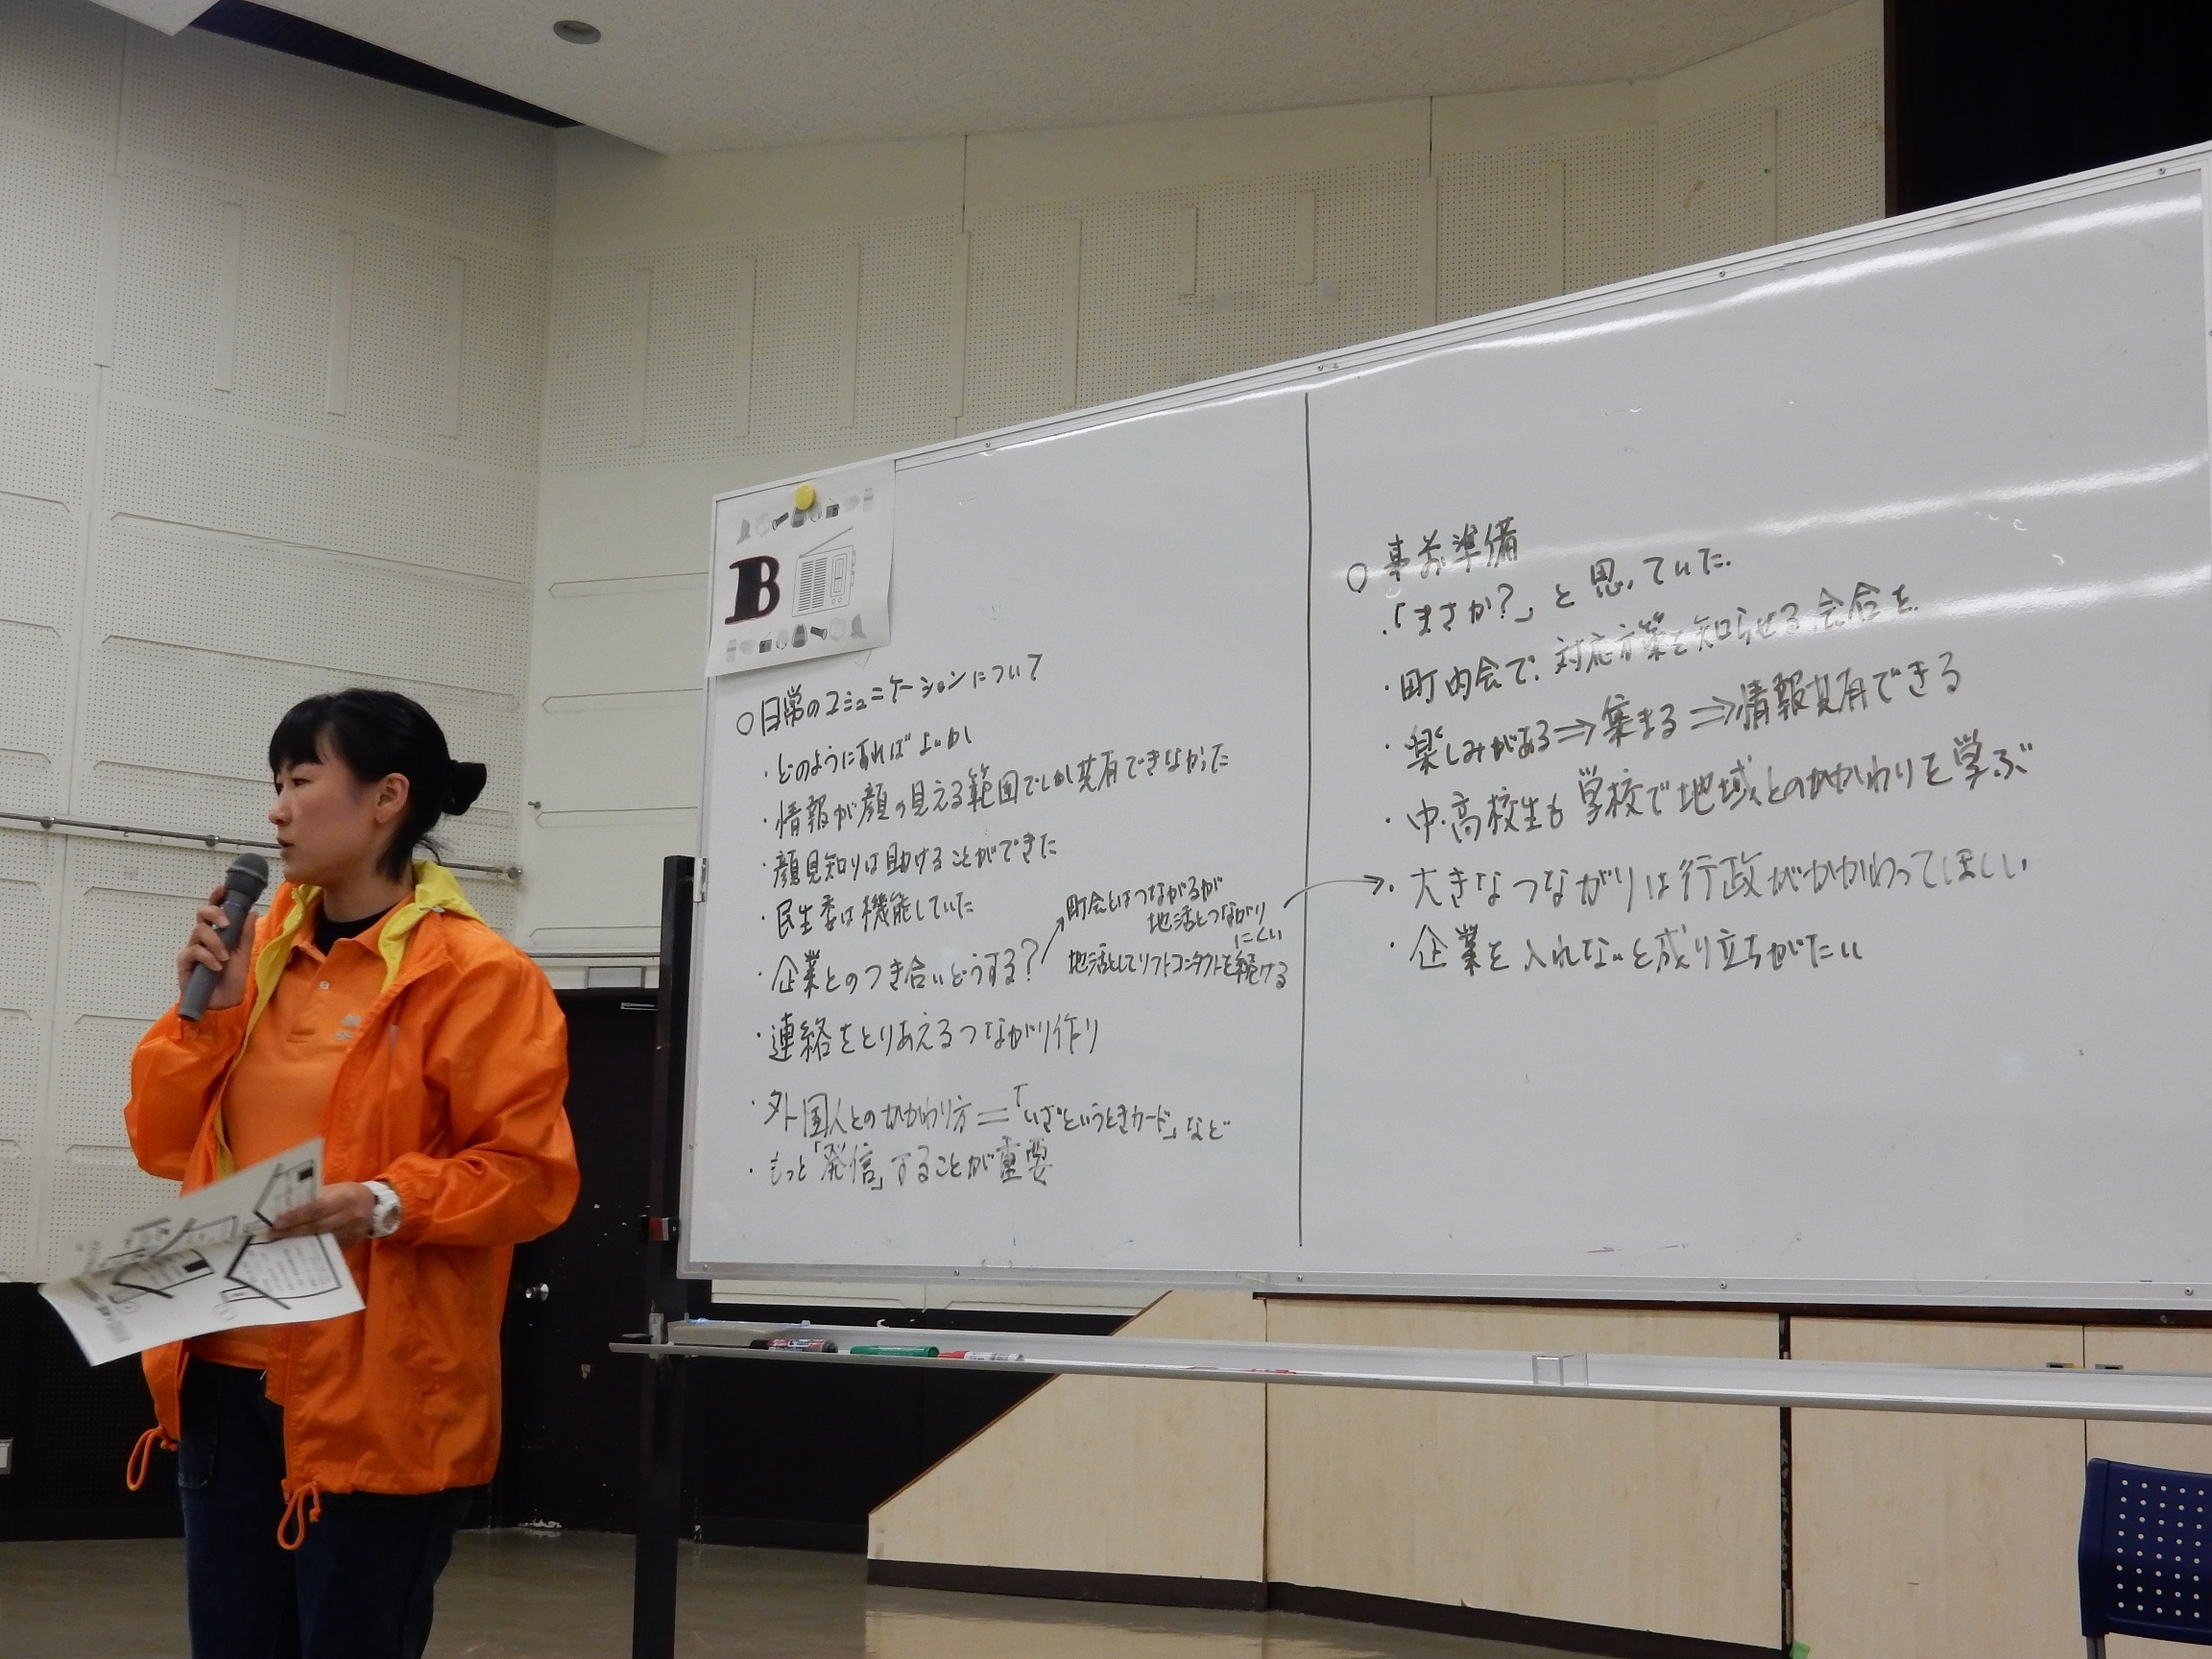 B
○日常のコミュニケーションについて
・どのようにあればよいか
・情報が顔の見える範囲でしか共有できなかった
・顔見知りは助けることができた
・民生委は機能していた
・企業とのつき合いどうする?
町会とはつながるが
地活とつながり
にくい
地活としてソフトコンタクトを続ける
・連絡をとりあえるつながり作り
・外国人とのかかわり方=「いざというときカード」など
・もっと「発信」することが重要
○事前準備
・「まさか?」と思っていた.
・町内会で、対応方策を知らせる会合を
・楽しみがある⇒集まる⇒情報共有できる
・中・高校生も学校で地域とのかかわりを学ぶ
・大きなつながりは行政がかかわってほしい
・企業を入れないと成り立ちがたい